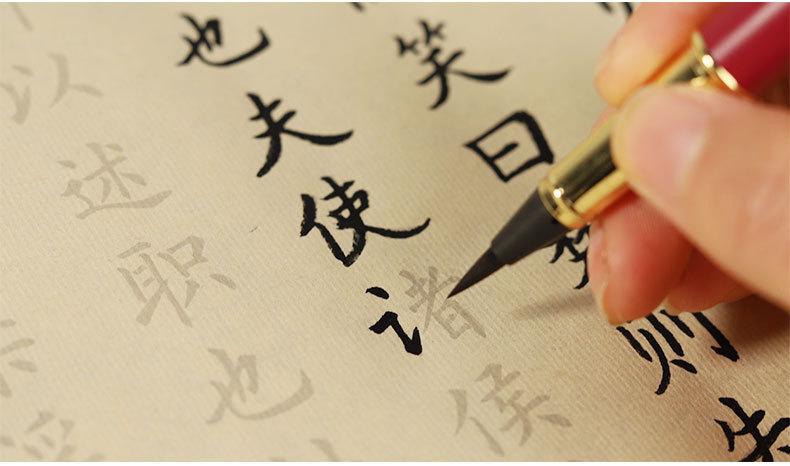 笑曰楚则失
也夫使诸侯
以述职也